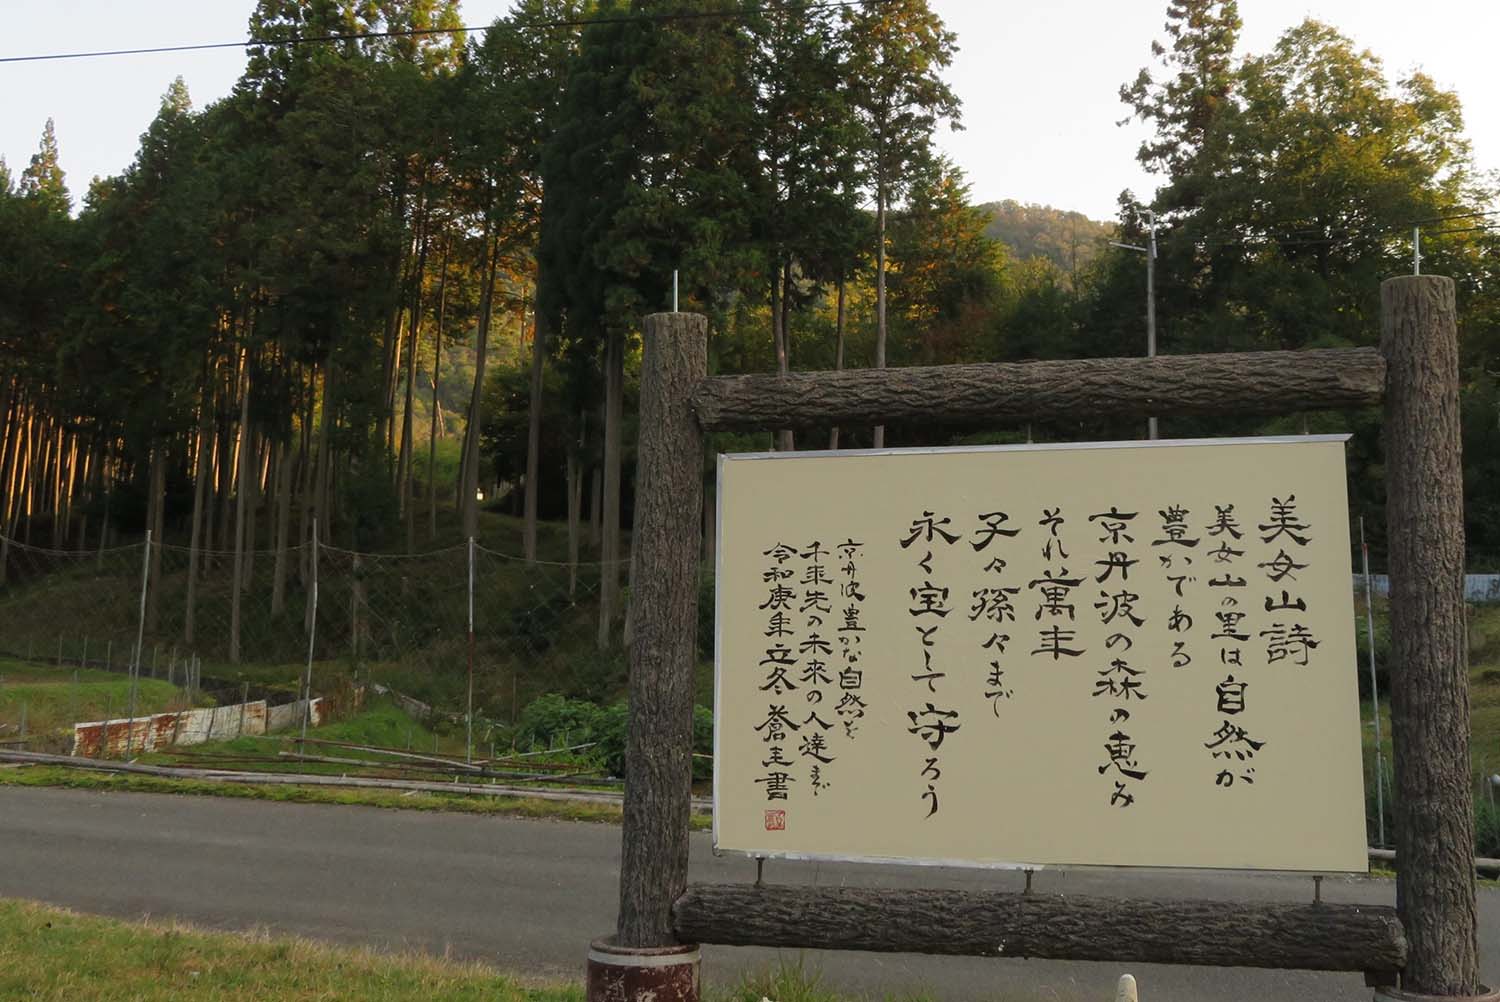 美女山詩
美女山の里は自然が
豊かである
京丹波の森の恵み
それ萬年
子々孫々まで
永く宝として守ろう
京丹波豊かな自然を
千年先の未来の人達まで
令和庚年立冬蒼主書